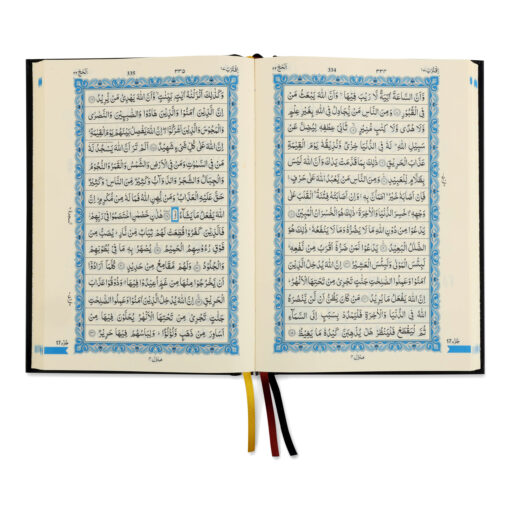 334
٣٣٤
الحج ٢٢
وَّاَنَّ السَّاعَةَ اٰتِيَةٌ لَّا رَيْبَ فِيْهَا ۙ وَاَنَّ اللّٰهَ يَبْعَثُ مَنْ
فِى الْقُبُوْرِ ۞ وَمِنَ النَّاسِ مَنْ يُّجَادِلُ فِى اللّٰهِ بِغَيْرِ عِلْمٍ
وَّلَا هُدًى وَّلَا كِتٰبٍ مُّنِيْرٍ ۞ ثَانِىَ عِطْفِهٖ لِيُضِلَّ عَنْ
سَبِيْلِ اللّٰهِ ؕ لَهٗ فِى الدُّنْيَا خِزْىٌ وَّنُذِيْقُهٗ يَوْمَ الْقِيٰمَةِ
عَذَابَ الْحَرِيْقِ ۞ ذٰلِكَ بِمَا قَدَّمَتْ يَدٰكَ وَاَنَّ اللّٰهَ لَيْسَ
بِظَلَّامٍ لِّلْعَبِيْدِ ۞ وَمِنَ النَّاسِ مَنْ يَّعْبُدُ اللّٰهَ عَلٰى حَرْفٍ ۚ
فَاِنْ اَصَابَهٗ خَيْرُ ۨاطْمَاَنَّ بِهٖ ۚ وَاِنْ اَصَابَتْهُ فِتْنَةُ ۨانْقَلَبَ عَلٰى
وَجْهِهٖ ۚ خَسِرَ الدُّنْيَا وَالْاٰخِرَةَ ؕ ذٰلِكَ هُوَ الْخُسْرَانُ الْمُبِيْنُ ۞
يَدْعُوْا مِنْ دُوْنِ اللّٰهِ مَا لَا يَضُرُّهٗ وَمَا لَا يَنْفَعُهٗ ؕ ذٰلِكَ هُوَ
الضَّلٰلُ الْبَعِيْدُ ۞ يَدْعُوْا لَمَنْ ضَرُّهٗٓ اَقْرَبُ مِنْ نَّفْعِهٖ ؕ
لَبِئْسَ الْمَوْلٰى وَلَبِئْسَ الْعَشِيْرُ ۞ اِنَّ اللّٰهَ يُدْخِلُ الَّذِيْنَ
اٰمَنُوْا وَعَمِلُوا الصّٰلِحٰتِ جَنّٰتٍ تَجْرِىْ مِنْ تَحْتِهَا الْاَنْهٰرُ ؕ
اِنَّ اللّٰهَ يَفْعَلُ مَا يُرِيْدُ ۞ مَنْ كَانَ يَظُنُّ اَنْ لَّنْ يَّنْصُرَهُ
اللّٰهُ فِى الدُّنْيَا وَالْاٰخِرَةِ فَلْيَمْدُدْ بِسَبَبٍ اِلَى السَّمَآءِ
ثُمَّ لْيَقْطَعْ فَلْيَنْظُرْ هَلْ يُذْهِبَنَّ كَيْدُهٗ مَا يَغِيْظُ ۞
335
٣٣٥
الحج ٢٢
وَكَذٰلِكَ اَنْزَلْنٰهُ اٰيٰتٍۢ بَيِّنٰتٍ ۙ وَّاَنَّ اللّٰهَ يَهْدِىْ مَنْ يُّرِيْدُ ۞
اِنَّ الَّذِيْنَ اٰمَنُوْا وَالَّذِيْنَ هَادُوْا وَالصّٰبِـِٕيْنَ وَالنَّصٰرٰى
وَالْمَجُوْسَ وَالَّذِيْنَ اَشْرَكُوْٓا ۖ اِنَّ اللّٰهَ يَفْصِلُ بَيْنَهُمْ يَوْمَ الْقِيٰمَةِ ؕ
اِنَّ اللّٰهَ عَلٰى كُلِّ شَىْءٍ شَهِيْدٌ ۞ اَلَمْ تَرَ اَنَّ اللّٰهَ يَسْجُدُ لَهٗ
مَنْ فِى السَّمٰوٰتِ وَمَنْ فِى الْاَرْضِ وَالشَّمْسُ وَالْقَمَرُ وَالنُّجُوْمُ
وَالْجِبَالُ وَالشَّجَرُ وَالدَّوَآبُّ وَكَثِيْرٌ مِّنَ النَّاسِ ؕ وَكَثِيْرٌ
حَقَّ عَلَيْهِ الْعَذَابُ ؕ وَمَنْ يُّهِنِ اللّٰهُ فَمَا لَهٗ مِنْ مُّكْرِمٍ ؕ اِنَّ
اللّٰهَ يَفْعَلُ مَا يَشَآءُ ۩ هٰذٰنِ خَصْمٰنِ اخْتَصَمُوْا فِىْ رَبِّهِمْ ؗ
فَالَّذِيْنَ كَفَرُوْا قُطِّعَتْ لَهُمْ ثِيَابٌ مِّنْ نَّارٍ ؕ يُصَبُّ مِنْ
فَوْقِ رُءُوْسِهِمُ الْحَمِيْمُ ۞ يُصْهَرُ بِهٖ مَا فِىْ بُطُوْنِهِمْ
وَالْجُلُوْدُ ۞ وَلَهُمْ مَّقَامِعُ مِنْ حَدِيْدٍ ۞ كُلَّمَآ اَرَادُوْٓا
اَنْ يَّخْرُجُوْا مِنْهَا مِنْ غَمٍّ اُعِيْدُوْا فِيْهَا ۗ وَذُوْقُوْا عَذَابَ
الْحَرِيْقِ ۞ اِنَّ اللّٰهَ يُدْخِلُ الَّذِيْنَ اٰمَنُوْا وَعَمِلُوا الصّٰلِحٰتِ
جَنّٰتٍ تَجْرِىْ مِنْ تَحْتِهَا الْاَنْهٰرُ يُحَلَّوْنَ فِيْهَا مِنْ
اَسَاوِرَ مِنْ ذَهَبٍ وَّلُؤْلُؤًا ؕ وَلِبَاسُهُمْ فِيْهَا حَرِيْرٌ ۞